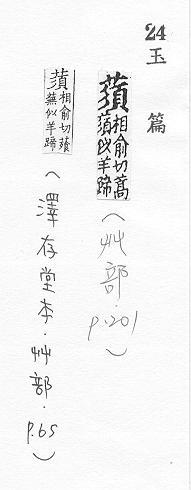 24 玉篇
蕦 相俞切薚蕦似羊蹄
(艸部.p.201)
蕦 相俞切薞蕪似羊蹄
(澤存堂本.艸部.p.65)